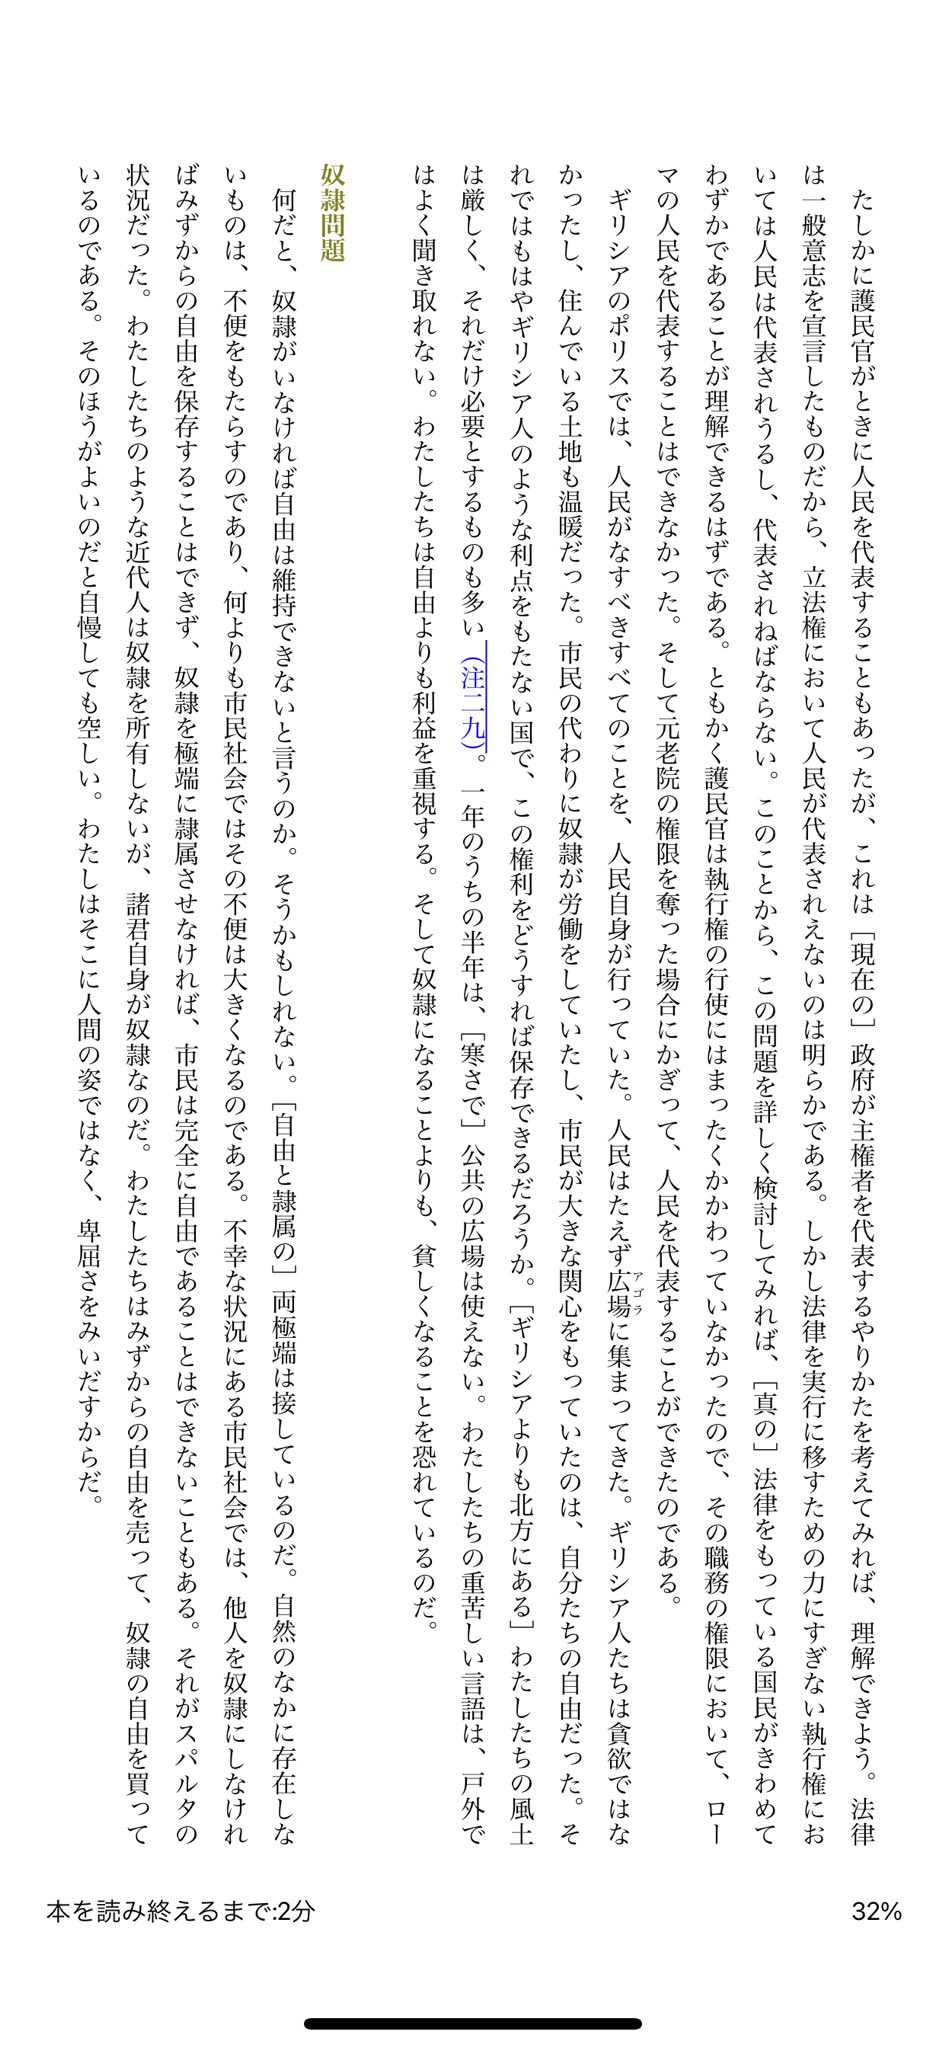 たしかに護民官がときに人民を代表することもあったが、これは［現在の］政府が主権者を代表するやりかたを考えてみれば、理解できよう。法律
は一般意志を宣言したものだから、立法権において人民が代表されえないのは明らかである。しかし法律を実行に移すための力にすぎない執行権にお
いては人民は代表されうるし、代表されねばならない。このことから、この問題を詳しく検討してみれば、［真の］法律をもっている国民がきわめて
わずかであることが理解できるはずである。ともかく護民官は執行権の行使にはまったくかかわっていなかったので、その職務の権限において、ロー
マの人民を代表することはできなかった。そして元老院の権限を奪った場合にかぎって、人民を代表することができたのである。
　ギリシアのポリスでは、人民がなすべきすべてのことを、人民自身が行っていた。人民はたえず広場アゴラに集まってきた。ギリシア人たちは貪欲ではな
かったし、住んでいる土地も温暖だった。市民の代わりに奴隷が労働をしていたし、市民が大きな関心をもっていたのは、自分たちの自由だった。そ
れではもはやギリシア人のような利点をもたない国で、この権利をどうすれば保存できるだろうか。［ギリシアよりも北方にある］わたしたちの風土
は厳しく、それだけ必要とするものも多い（注二九）。一年のうちの半年は、［寒さで］公共の広場は使えない。わたしたちの重苦しい言語は、戸外で
はよく聞き取れない。わたしたちは自由よりも利益を重視する。そして奴隷になることよりも、貧しくなることを恐れているのだ。
奴隷問題
　何だと、奴隷がいなければ自由は維持できないと言うのか。そうかもしれない。［自由と隷属の］両極端は接しているのだ。自然のなかに存在しな
いものは、不便をもたらすのであり、何よりも市民社会ではその不便は大きくなるのである。不幸な状況にある市民社会では、他人を奴隷にしなけれ
ばみずからの自由を保存することはできず、奴隷を極端に隷属させなければ、市民は完全に自由であることはできないこともある。それがスパルタの
状況だった。わたしたちのような近代人は奴隷を所有しないが、諸君自身が奴隷なのだ。わたしたちはみずからの自由を売って、奴隷の自由を買って
いるのである。そのほうがよいのだと自慢しても空しい。わたしはそこに人間の姿ではなく、卑屈さをみいだすからだ。
本を読み終えるまで:2分
32%